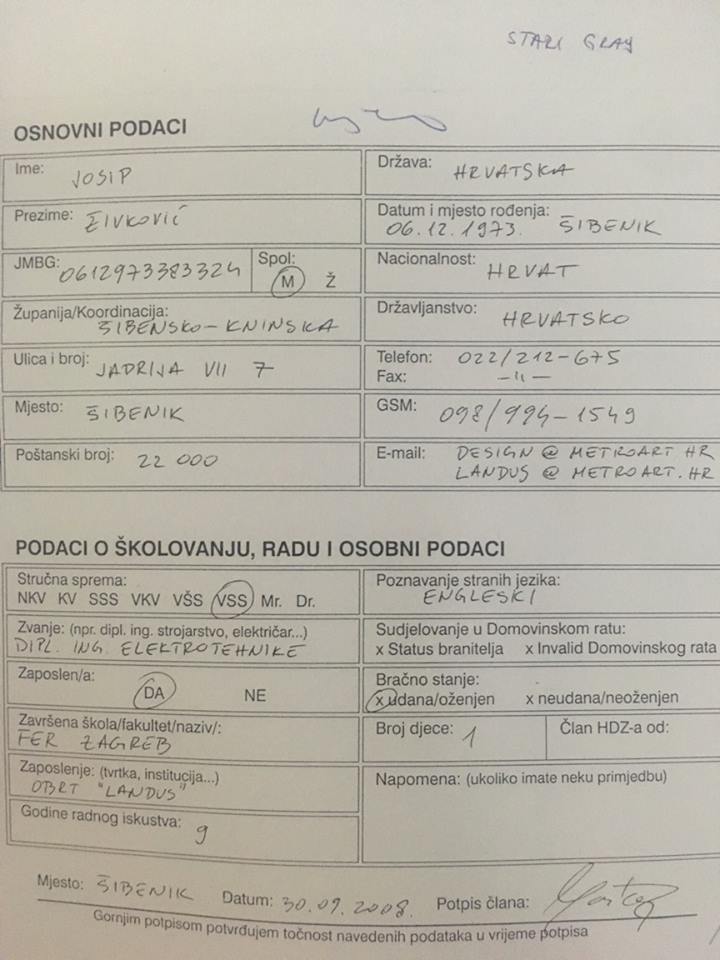 STARI GRAD
OSNOVNI PODACI
Ime: JOSIP
Država: HRVATSKA
Prezime: ŽIVKOVIĆ
Datum i mjesto rođenja:
06.12.1973. ŠIBENIK
JMBG: 0612973383324
Spol:
M Ž
Nacionalnost: HRVAT
Županija/Koordinacija:
ŠIBENSKO-KNINSKA
Državljanstvo: HRVATSKO
Ulica i broj: JADRIJA VII 7
Telefon: 022/212-675
Fax: -"-
Mjesto: ŠIBENIK
GSM: 098/994-1549
Poštanski broj: 22 000
E-mail: DESIGN @ METROART.HR
LANDUS @ METROART.HR
PODACI O ŠKOLOVANJU, RADU I OSOBNI PODACI
Stručna sprema:
NKV KV SSS VKV VŠS VSS Mr. Dr.
Poznavanje stranih jezika:
ENGLESKI
Zvanje: (npr. dipl. ing. strojarstvo, električar...)
DIPL. ING. ELEKTROTEHNIKE
Sudjelovanje u Domovinskom ratu:
x Status branitelja x Invalid Domovinskog rata
Zaposlen/a:
DA NE
Bračno stanje:
x udana/oženjen x neudana/neoženjen
Završena škola/fakultet/naziv/:
FER ZAGREB
Broj djece: 1
Član HDZ-a od:
Zaposlenje: (tvrtka, institucija...)
OBRT "LANDUS"
Napomena: (ukoliko imate neku primjedbu)
Godine radnog iskustva: 9
Mjesto: ŠIBENIK Datum: 30.09.2008. Potpis člana:
Gornjim potpisom potvrđujem točnost navedenih podataka u vrijeme potpisa